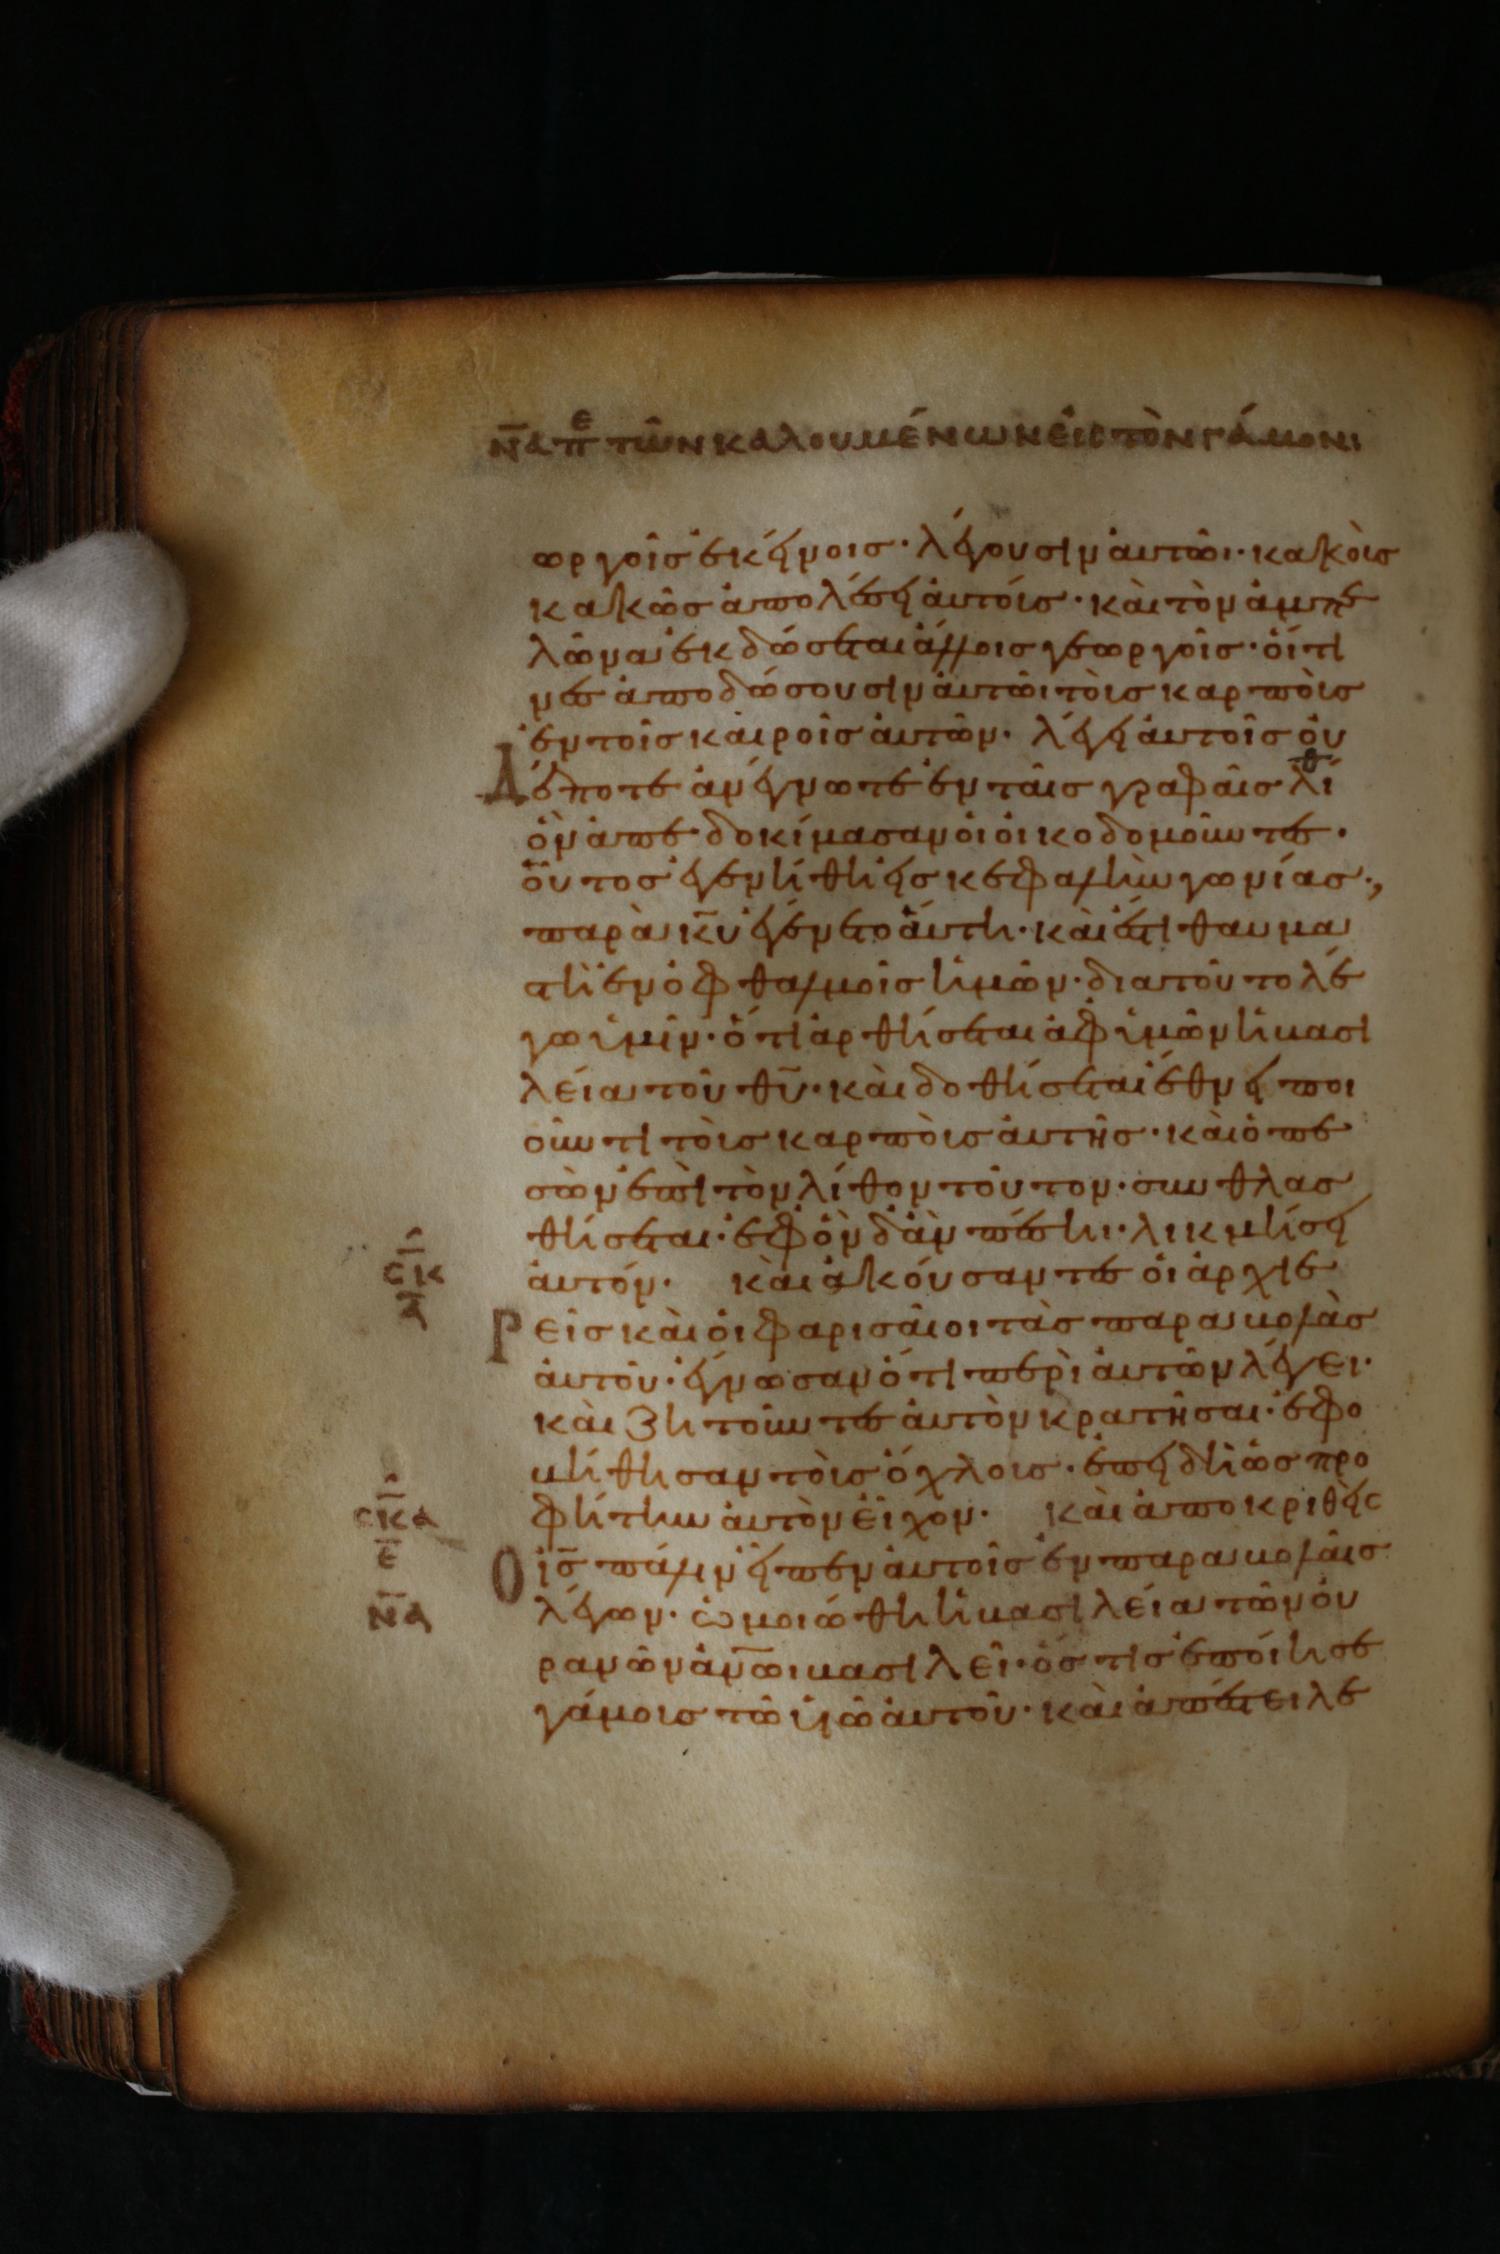 ΝΑ ΠΕ ΤῶΝ ΚΑΛΟΥΜΈΝΩΝ ΕἸC ΤῸΝ ΓΆΜΟΝ
ωργοῖσ ἐκείνοισ· λέγουσιν ἀυτῶι· κακοὺσ
κακῶσ ἀπολέσει ἀυτούσ· κὰι τὸν ἀμπε
λῶνα ἐκδώσεται ἄλλοισ γεωργοῖσ· ὅιτι
νεσ ἀποδώσουσιν ἀυτῶι τοὺσ καρποὺσ
ἐν τοῖσ καιροῖσ ἀυτῶν· λέγει ἀυτοῖσ ὁ ιυ
Δέποτε ἀνέγνωτε ἐν ταῖσ γραφαῖσ λίθ
ὃν ἀπε δοκίμασαν ὁι ὀικοδομοῦντεσ·
οὗτοσ ἐγενήθη ἐισ κεφαλὴν γωνίασ·,
παρὰ κῡ ἐγένετο ἅυτη· κὰι ἔστι θαυμα
στὴ ἐν ὀφθαλμοῖσ ἡμῶν· διατοῦτο λέ
γω ὑμῖν· ὅτι ἀρθήσεται ἀφ ὑμῶν ἡ βασι
λεία τοῦ θῡ· κὰι δοθήσεται ἔθνει ποι
οῦντι τοὺσ καρποὺσ ἀυτῆσ· κὰι ὁ πε
σὼν ἐπὶ τὸν λίθον τοῦτον· συνθλασ
θήσεται· ἐφ ὃν δ ἂν πέση· λικμήσει
ἀυτόν· κὰι ἀκούσαντεσ ὁι ἀρχιε
CΚ
Α
Ρεῖσ κὰι ὁι φαρισαῖοι τὰσ παραβολὰσ
ἀυτοῦ· ἔγνωσαν ὅτι περὶ ἀυτῶν λέγει·
κὰι ζητοῦντεσ ἀυτὸν κρατῆσαι· ἐφο
βήθησαν τοὺσ ὄχλουσ· ἐπειδὴ ὡσ προ
φήτην ἀυτὸν εἶχον· κὰι ἀποκριθεὶς
CΚΑ
Ε
Ὁ ῑσ̄ πάλιν εἶπεν ἀυτοῖσ ἐν παραβολαῖσ
ΝΑ
λέγων· ὡμοιώθη ἡ βασιλεία τῶν ὀυ
ρανῶν ἀν̅ωι βασιλεῖ· ὅστισ ἐποίησε
γάμουσ τῶ ὑιῶ ἀυτοῦ· κὰι ἀπέστειλε